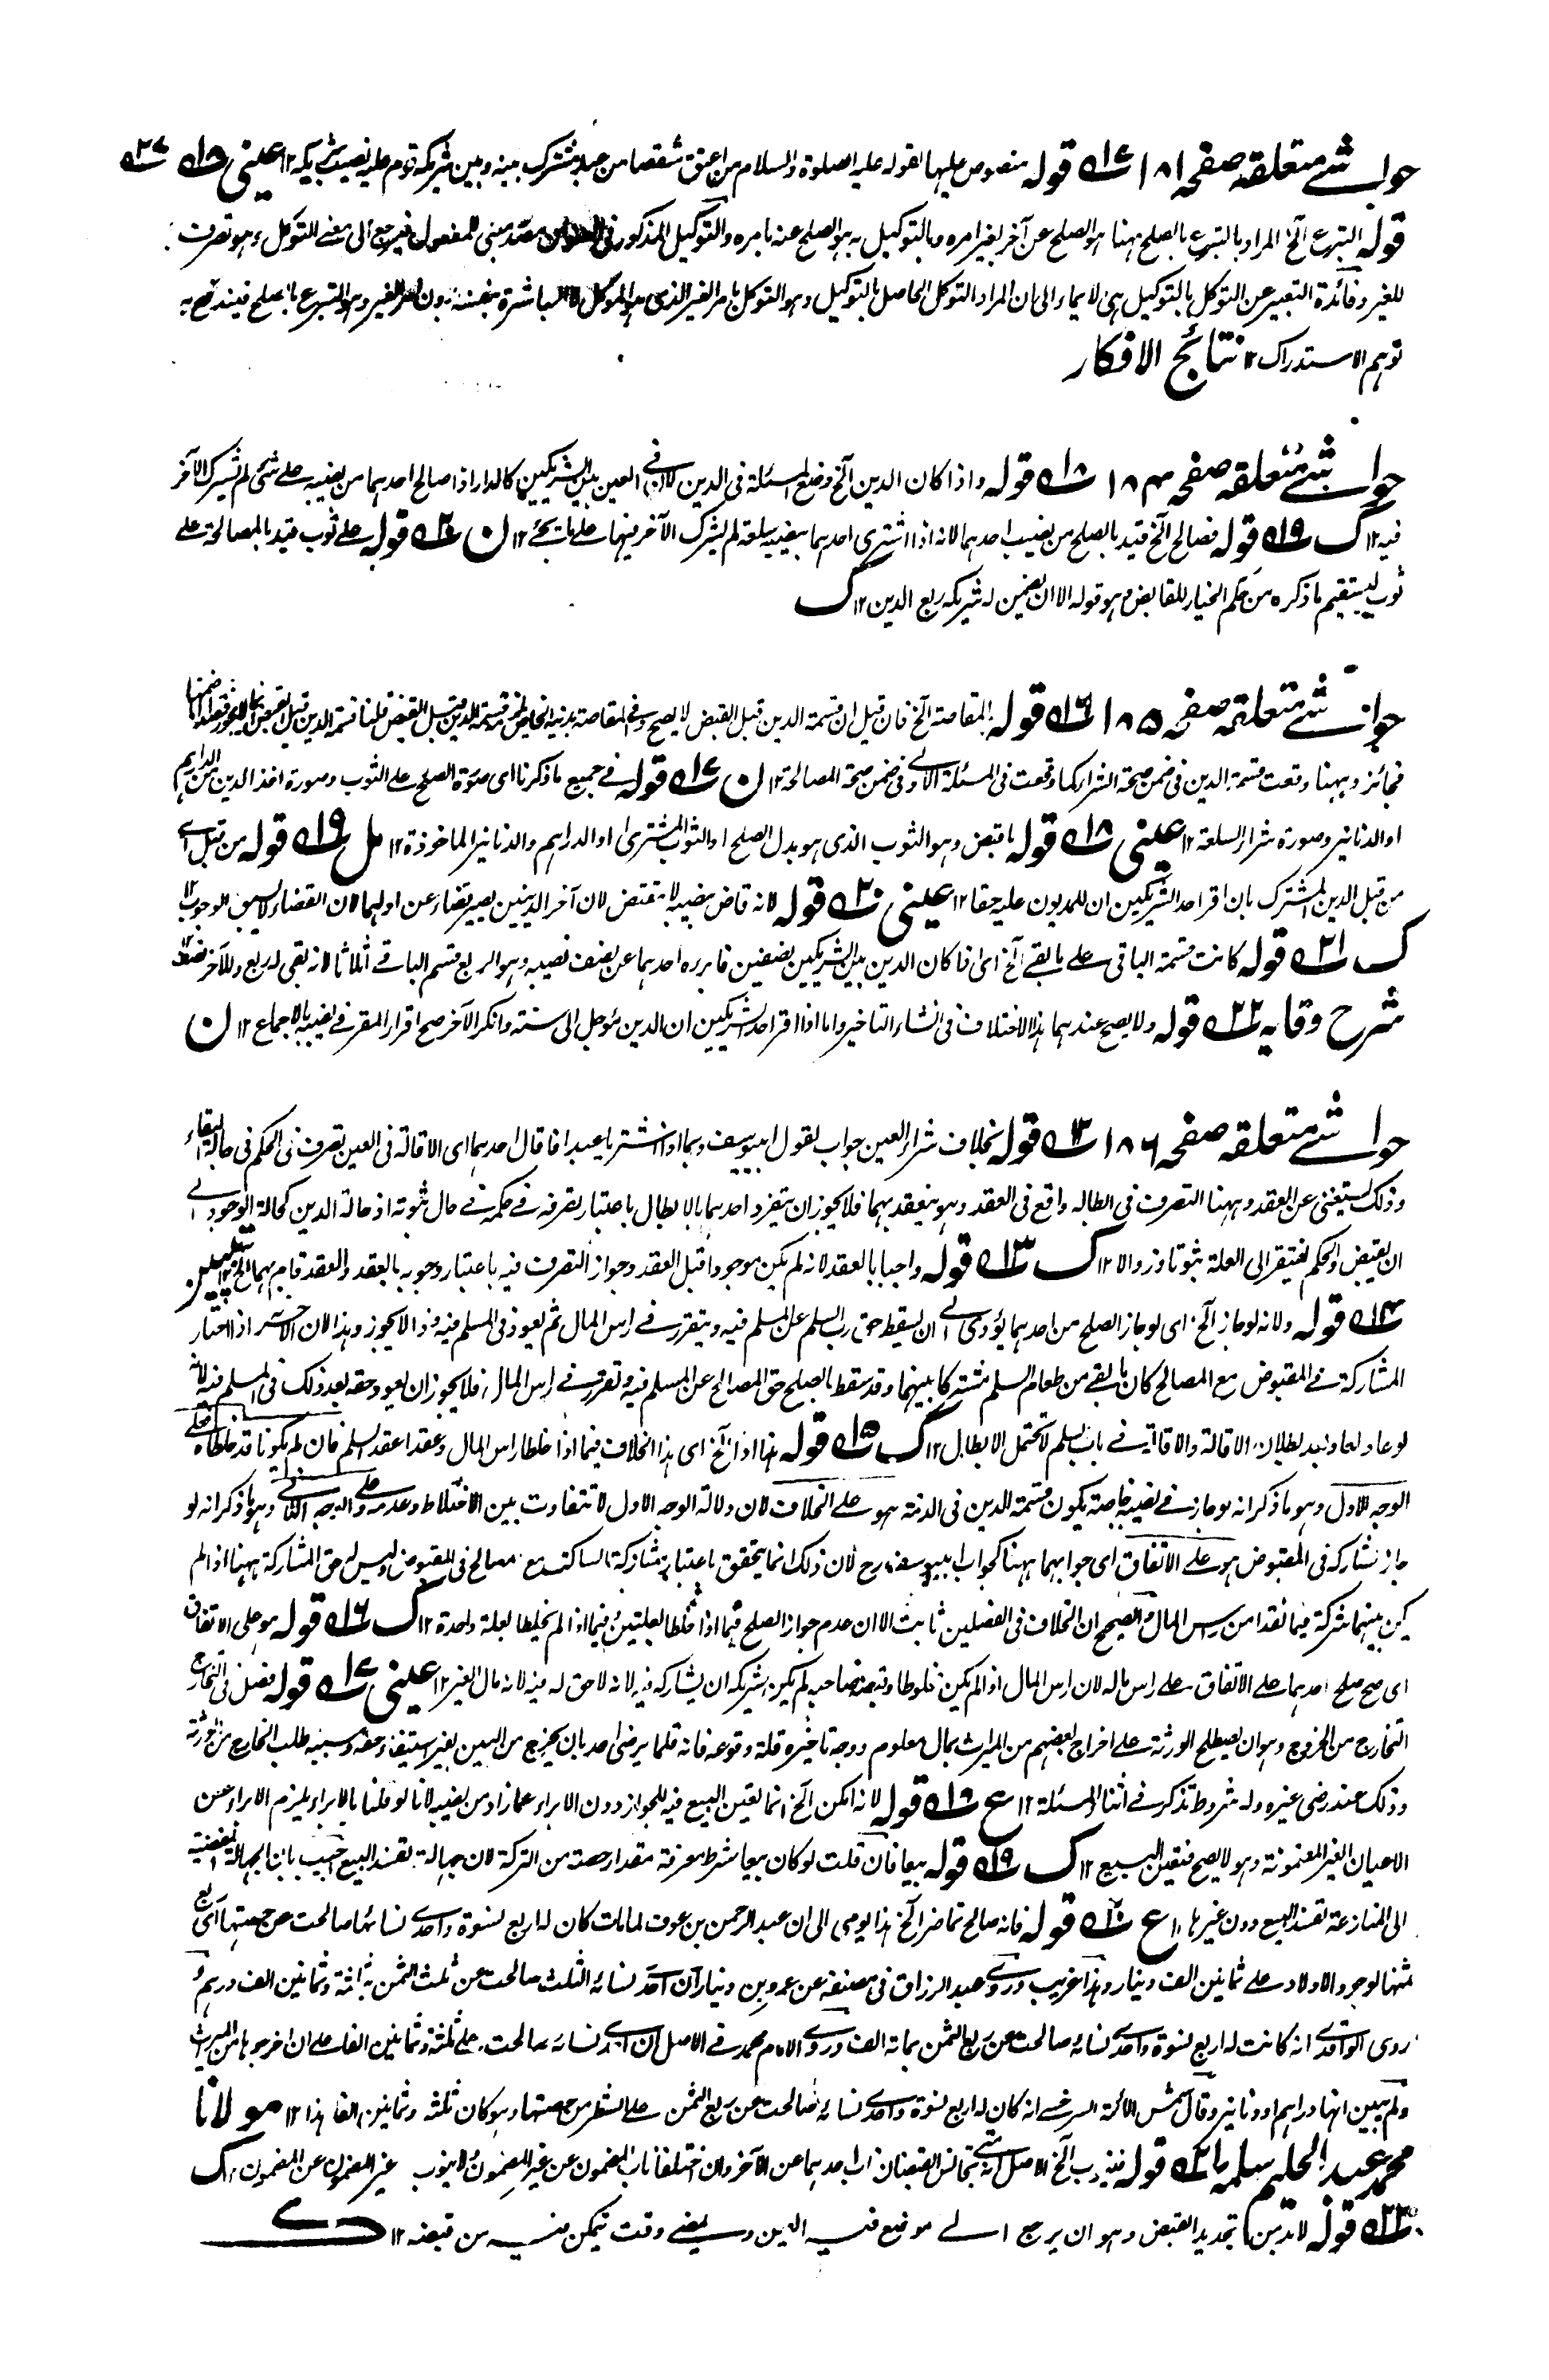 حواشے متعلقہ صفحہ ۱۸۱ ۱۷ قولہ منصوص علیہا لقولہ علیہ الصلوۃ والسلام من اعتق شقصا من عبد مشترک بینہ وبین شریکہ قوم علیہ نصیب شریکہ ۱۲ عینی ۱۸
قولہ التبرع آلخ المراد بالتبرع بالصلح ہہنا ہو الصلح عن آخر بغیر امرہ وبالتوکیل بہ ہو الصلح عنہ بامرہ والتوکیل المذکور فی مصدر مبنی للمفعول فیرجع الی معنے التوکل وہو تصرف
للغیر وفائدۃ التعبیر عن التوکل بالتوکیل ہی الایماء الی ان المراد التوکل الحاصل بالتوکیل وہو التوکل بامر الغیر الذی ہو الموکل لا المباشرۃ بنفسہ بدون امر الغیر وہو التبرع بالصلح فیندفع بہ
توہم الاستدراک ۱۲ نتائج الافکار
حواشے متعلقہ صفحہ ۱۸۴ ۱۸ قولہ واذا کان الدین آلخ وضع المسئلۃ فی الدین لان فی العین بین الشریکین کالدار اذا صالح احدہما من نصیبہ علے شئ لم یشرک الآخر
فیہ ۱۲ ک ۱۹ قولہ فصالح آلخ قید بالصلح من نصیب احدہما لانہ اذا اشتری احدہما بنصیبہ سلعۃ لم یشرک الآخر فیہا علے ما یجئ ۱۲ ن ۲۰ قولہ علے ثوب قید بالمصالحۃ علے
ثوب لیستقیم ما ذکرہ من حکم الخیار للقابض وہو قولہ الا ان یضمن لہ شریکہ ربع الدین ۱۲ ک
حواشے متعلقہ صفحہ ۱۸۵ ۱۶ قولہ بالمقاصۃ آلخ فان قیل ان قسمۃ الدین قبل القبض لا یصح وفی المقاصۃ بدینہ الخاص قسمۃ الدین قبل القبض قلنا قسمۃ الدین قبل القبض
فجائز وہہنا وقعت قسمۃ الدین فی ضمن صحۃ الشراء کما وقعت فی المسئلۃ الاولی فی ضمن صحۃ المصالحۃ ۱۲ ن ۱۷ قولہ فے جمیع ما ذکرنا ای صورۃ الصلح علے الثوب وصورۃ اخذ الدین من الدراہم
او الدنانیر وصورۃ شراء السلعۃ ۱۲ عینی ۱۸ قولہ ما قبض وہو الثوب الذی ہو بدل الصلح او الثوب المشتری او الدراہم والدنانیر الماخوذۃ ۱۲ مل ۱۹ قولہ من قبل اے
من قبل الدین المشترک بان اقر احد الشریکین ان للمدیون علیہ حقا ۱۲ عینی ۲۰ قولہ لانہ قاض نصیبہ لا مقتض لان آخر الدینین یصیر قضاء عن اولہما لان القضاء لا یسبق الوجوب ۱۲
ک ۲۱ قولہ کانت قسمۃ الباقی علے ما بقے آلخ ای اذا کان الدین بین الشریکین نصفین فابرء احدہما عن نصف نصیبہ وہو الربع قسم الباقے اثلاثا لانہ بقی لہ ربع وللآخر نصف
شرح وقایہ ۲۲ قولہ ولا یصح عندہما ہذا الاختلاف فی انشاء التاخیر واما اذا اقر احد الشریکین ان الدین مؤجل الی سنۃ وانکر الآخر صح اقرار المقر فے نصیبہ بالاجماع ۱۲ ن
حواشے متعلقہ صفحہ ۱۸۶ ۱۲ قولہ بخلاف شراء العین جواب لقول ابیوسف وبما اذا اشتریا عبدا فاقال احدہما ای الاقالۃ فی العین تصرف فی الحکم فی حالۃ البقاء
وذلک یستغنی عن العقد وہہنا التصرف فی ابطالہ واقع فی العقد وہو ینعقد بہما فلا یجوز ان یتفرد احدہما بالابطال باعتبار تصرفہ فے حکمہ فے حال ثبوتہ اذ حالۃ الدین کحالۃ الوجود الی
ان یقبض والحکم یفتقر الی العلۃ ثبوتا وزوالا ۱۲ ک ۱۳ قولہ واجبا بالعقد لانہ لم یکن موجودا قبل العقد وجواز التصرف فیہ باعتبار وجوبہ بالعقد والعقد قام بہما
۱۴ قولہ ولانہ لو جاز آلخ ای لو جاز الصلح من احدہما یؤدی الی ان یسقط حق رب السلم عن المسلم فیہ ویتقرر فے راس المال ثم یعود فی المسلم فیہ وذا لا یجوز وہذا لان الآخر اذا اختار
المشارکۃ فے المقبوض مع المصالح کان ما بقے من طعام السلم مشترکا بینہما وقد سقط بالصلح حق المصالح عن المسلم فیہ وتقرر فے راس المال فلا یجوز ان یعود حقہ بعد ذلک فی المسلم فیہ لانہ
لو عاد لعاد بعد بطلان الاقالۃ والاقالۃ فے باب السلم لا تحتمل الابطال ۱۲ ک ۱۵ قولہ ہذا اذا آلخ ای ہذا الخلاف فیما اذا خلطا راس المال وعقدا عقد السلم فان لم یکونا قد خلطاہ فعلے
الوجہ الاول وہو ما ذکر انہ لو جاز فے نصیبہ خاصۃ یکون قسمۃ للدین فی الذمۃ ہو علے الخلاف لان دلالۃ الوجہ الاول لا تتفاوت بین الاختلاط وعدمہ وعلے الوجہ الثانے وہو ما ذکر انہ لو
جاز لشارکہ فی المقبوض ہو علے الاتفاق ای جوابہما ہہنا کجواب ابیوسف رح لان ذلک انما یتحقق باعتبار مشارکۃ الساکت مع المصالح فی المقبوض ولیس لہ حق المشارکۃ ہہنا اذا لم
یکن بینہما شرکۃ فیما نقدا من راس المال والصحیح ان الخلاف فی الفصلین ثابت الا ان عدم جواز الصلح فیما اذا خلطا بعلتین وفیما اذا لم یخلطا بعلۃ واحدۃ ۱۲ ک ۱۶ قولہ ہو علی الاتفاق
ای صح صلح احدہما علے الاتفاق علے راس مالہ لان راس المال اذا لم یکن مخلوطا وقبضہ صاحبہ لم یکن لشریکہ ان یشارکہ فیہ لانہ لا حق لہ فیہ لانہ مال الغیر ۱۲ عینی ۱۷ قولہ فصل فی التخارج
التخارج من الخروج وہو ان یصطلح الورثۃ علے اخراج بعضہم من المیراث بمال معلوم ووجہ تاخیرہ قلۃ وقوعہ فانہ قلما یرضی احد بان یخرج من البین بغیر استیفاء حقہ وسببہ طلب الخارج من الورثۃ
وذلک عند رضی غیرہ ولہ شروط تذکر فے اثناء المسئلۃ ۱۲ ع ۱۸ قولہ لانہ امکن آلخ انما تعین البیع فیہ للجواز دون الابراء عما زاد من نصیبہ لانا لو قلنا بالابراء یلزم الابراء عن
الاعیان الغیر المضمونۃ وہو لا یصح فتعین البیع ۱۲ ک ۱۹ قولہ بیعا فان قلت لو کان بیعا شرط معرفۃ مقدار حصتہ من الترکۃ لان جہالتہ تفسد البیع اجیب بان الجہالۃ المفضیۃ
الی المنازعۃ تفسد البیع دون غیرہا ۱۲ ع ۲۰ قولہ فانہ صالح تماضر آلخ ہذا یومی الی ان عبد الرحمن بن عوف لما مات کان لہ اربع نسوۃ واحدے نسائہا صالحت عن حصتہا ای ربع
ثمنہا لوجود الاولاد علے ثمانین الف دینار وہذا غریب وروے عبد الرزاق فی مصنفہ عن عمرو بن دینار ان احد نسائہ الثلث صالحت عن ثلث الثمن بثلثۃ وثمانین الف درہم و
روی الواقدے انہ کانت لہ اربع نسوۃ واحدے نسائہ صالحت عن ربع الثمن بمائۃ الف وروے الامام محمد فے الاصل ان احدی نسائہ صالحت علے ثلثۃ وثمانین الفا علے ان اخرجوہا من المیراث
ولم یبین انہا دراہم او دنانیر وقال شمس الائمۃ السرخسے انہ کان لہ اربع نسوۃ واحدے نسائہ صالحت عن ربع الثمن علے الشطر من حصتہا وہو کان ثلثۃ وثمانین الفا ہذا ۱۲ مولانا
محمد عبد الحلیم سلمہ ۲۱ قولہ ینوب آلخ الاصل انہ متے تجانس القبضان ناب احدہما عن الآخر وان اختلفا ناب المضمون عن غیر المضمون ولا ینوب غیر المضمون عن المضمون ۱۲ ک
۲۲ قولہ لا بد من تجدید القبض وہو ان یرجع الے موضع فیہ العین ویمضے وقت یتمکن فیہ من قبضہ ۱۲ ک